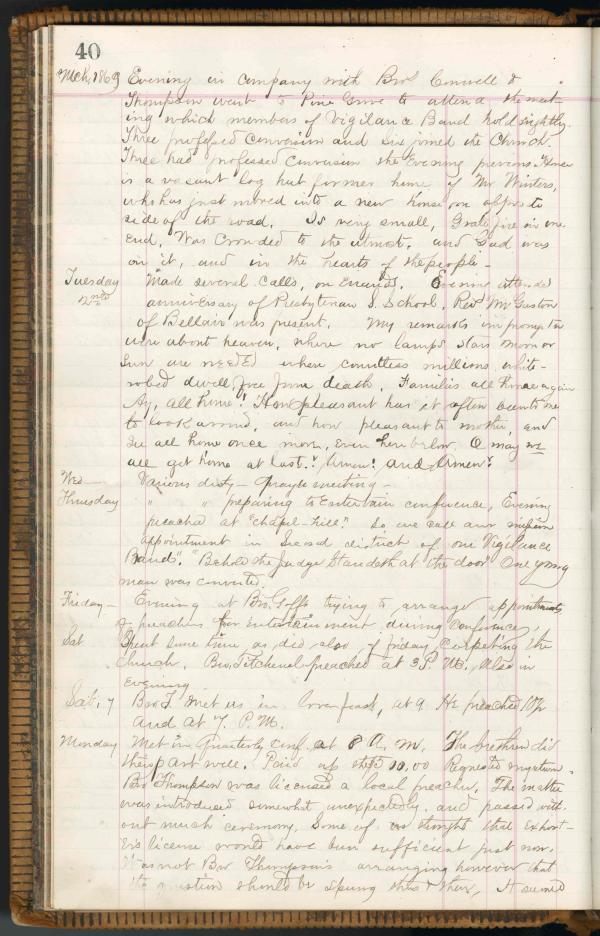 40
Mch, 1869 Evening in company with Bros Conwell &
Thompson went to Pine Grove to attend the meet-
ing which members of Vigilance Band hold nightly.
Three professed conversion and six joined the Church.
Three had professed conversion the Evening previous.
is a vacant log hut former home of Mr Winters,
who has just moved into a new house on opposite
side of the road. Is very small, Grate fire in one
End, Was crowded to the utmost, and God was
in it, and in the hearts of the people.
Tuesday Made several calls, on Errands. Evening attended
2nd anniversary of Presbyterian S. School. Rev
of Bellair was present. My remarks impromptu
were about heaven, where no lamps stars moon or
Sun are needed where countless millions white-
robed dwell free from death. Families all home again
Ay, all home! How pleasant has it often been to me
to look around, and how pleasant to mother, and
See all home once more, even here below. O may we
all get home at last. Amen! and Amen!
Wed— Various duty— prayer meeting—
Thursday " " preparing to Entertain conference, Evening
preached at "Chapel-hill." So we call our
appointment in Second district of our Vigilance
Band". "Behold the Judge Standeth at the door" One young
man was converted.
Friday— Evening at Bro. Goffs trying to arrange appointments
of preachers for entertainment during Conference,
Sat Spent some time as did also of friday, carpeting the
Church. Bro. Fitchenel preached at 3 P.M. Also in
Evening
Sab. 7 Bro F. met us in lovefeast, at 9 He preached 10½
and at 7. P. M.
Monday Met in Quarterly Conf. at 8 A. M. The brethren did
their part well. Paid up Requested my return.
Bro Thompson was licensed a local preacher. The matter
was introduced somewhat unexpectedly, and passed with-
out much ceremony. Some of us thought that exhort-
er's license would have been sufficient just now.
Was not Bro Thompson's arranging however that
the question should be sprung thus & then, It seemed